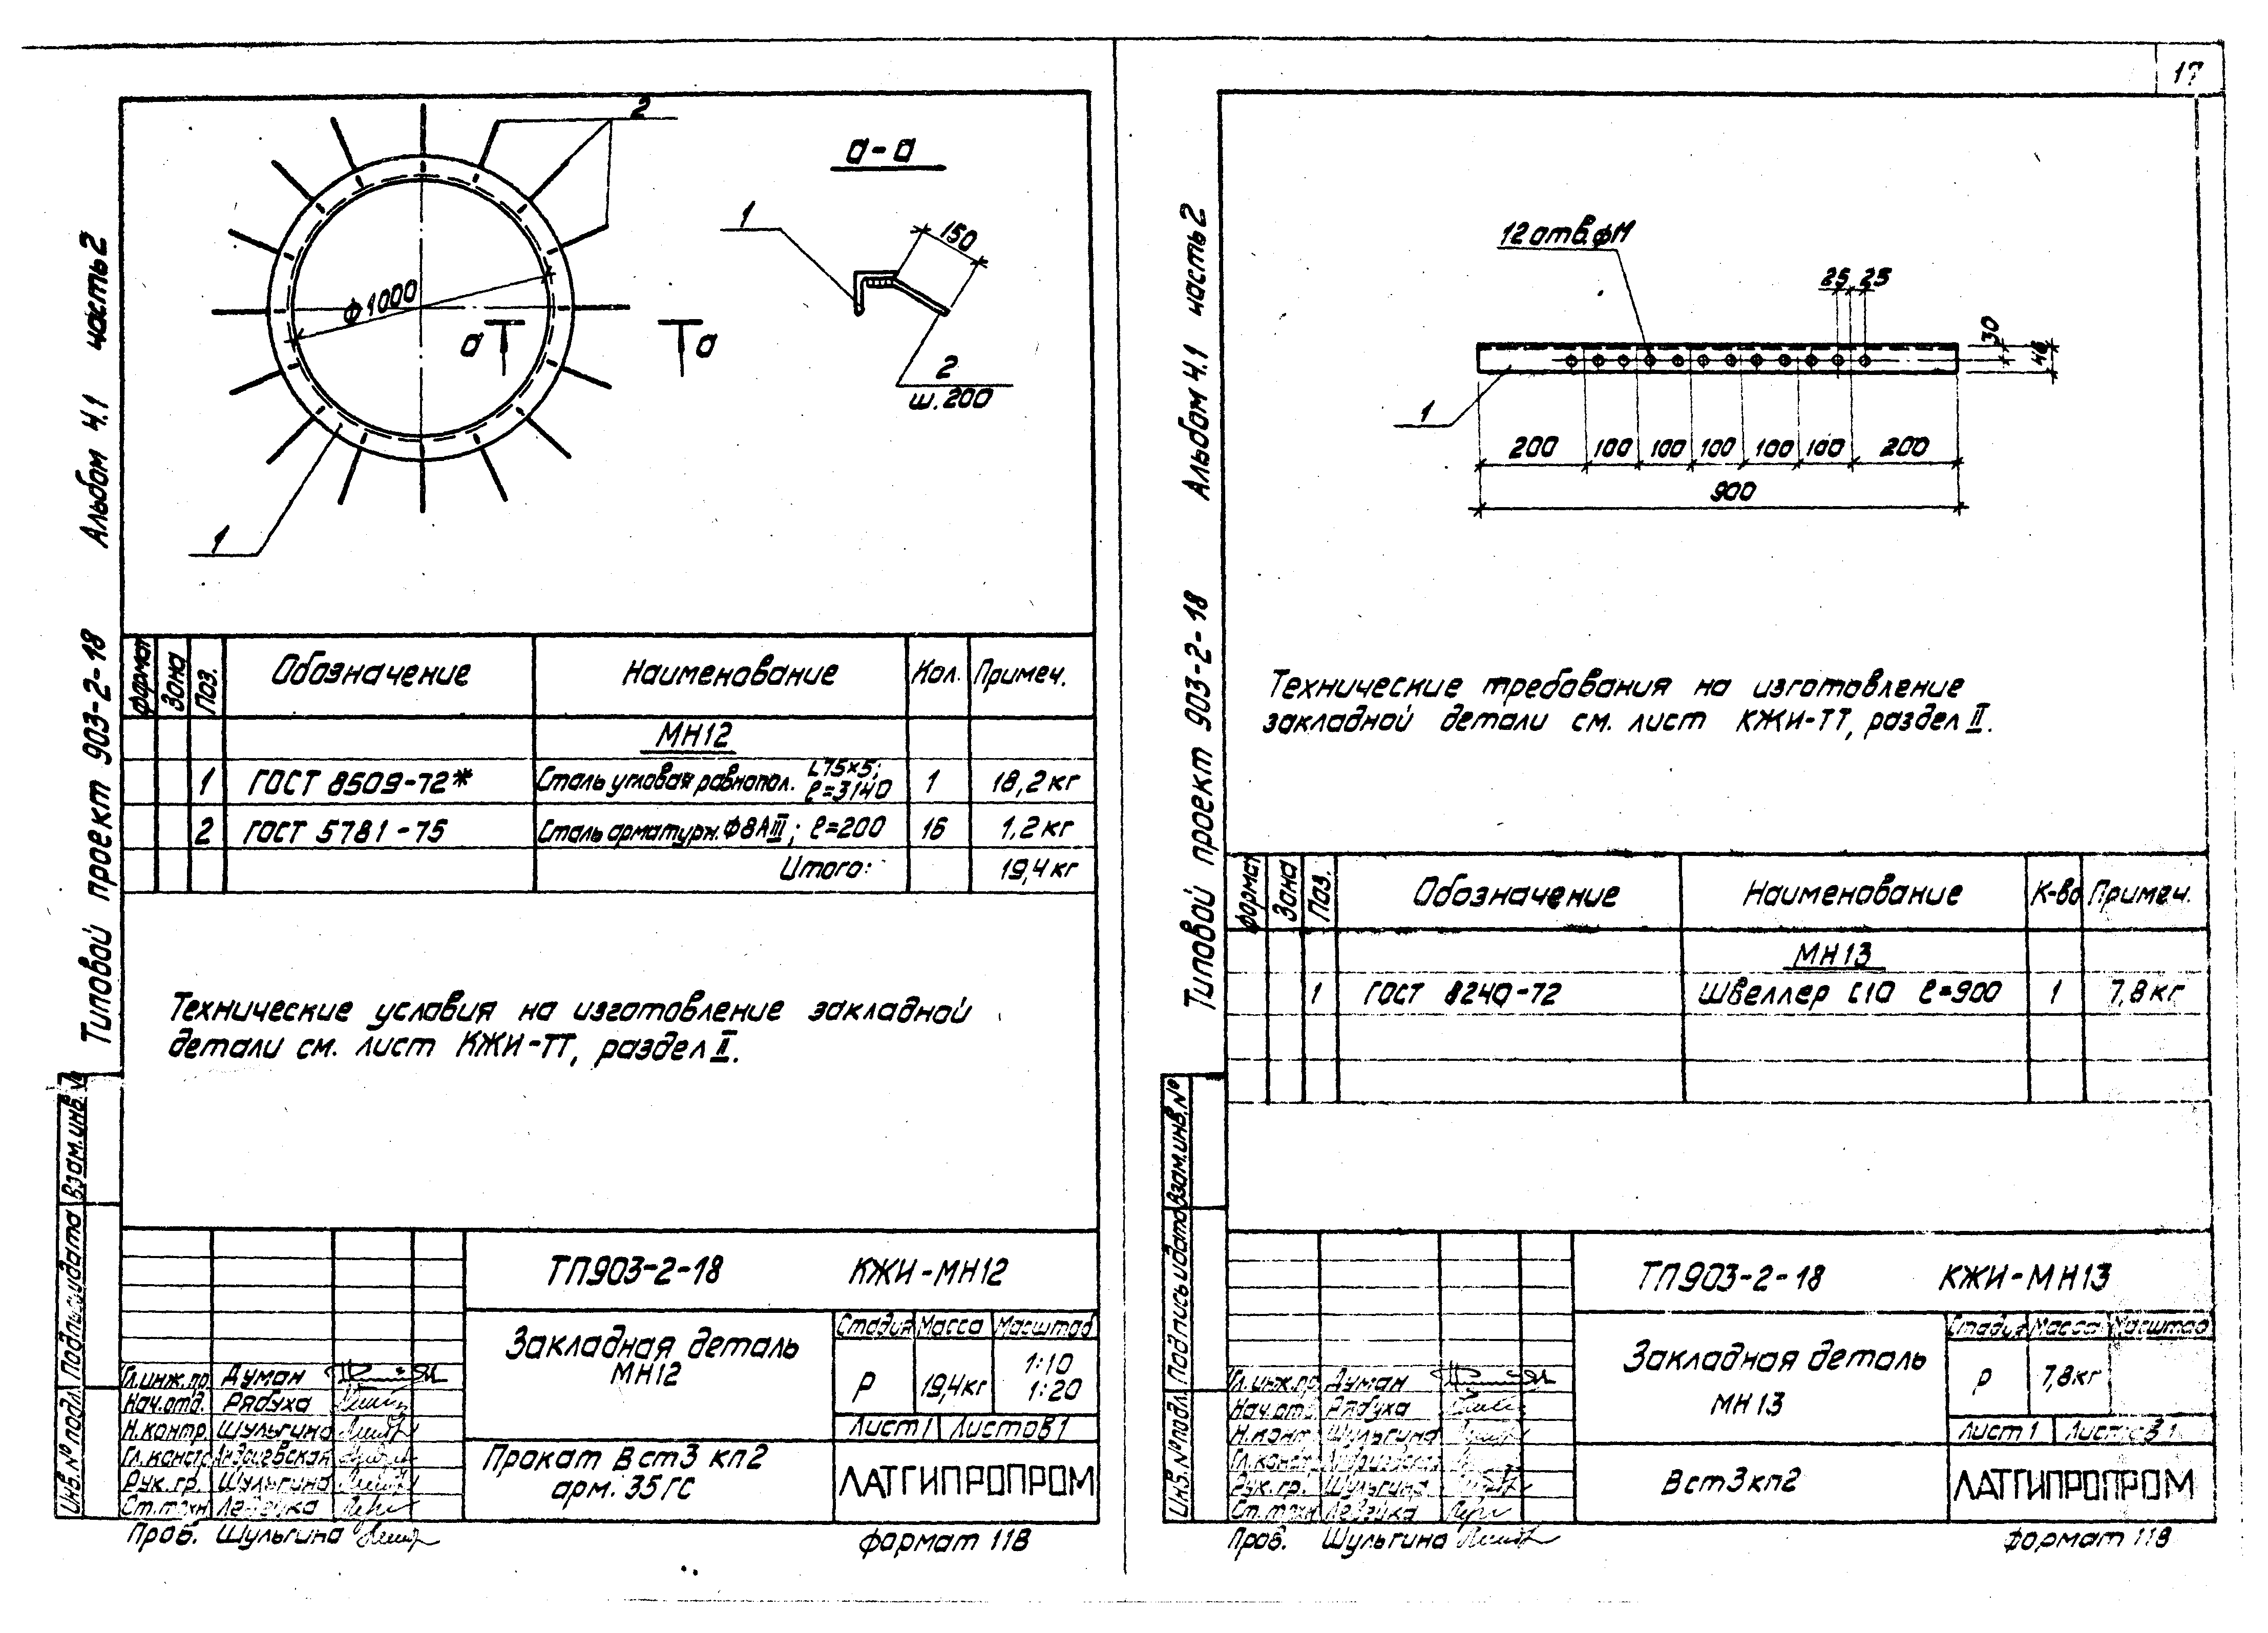 17
Типовой проект 903-2-18 Альбом 4.1 часть 2
2
а-а
1
150
ф1000
а
а
2
ш.200
1
Формат
Зона
Поз.
Обозначение
Наименование
Кол.
Примеч.
МН12
1 ГОСТ 8509-72* Сталь угловая равнопол. L75×5; ℓ=3140 1 18,2 кг
2 ГОСТ 5781-75 Сталь арматурн. Ф8АIII; ℓ=200 16 1,2 кг
Итого: 19,4 кг
Технические условия на изготовление закладной
детали см. лист КЖИ-ТТ, раздел II.
Инв.№ подл. Подпись и дата Взам.инв.№
ТП903-2-18 КЖИ-МН12
Закладная деталь
МН12
Стадия Масса Масштаб
Р 19,4кг 1:10
1:20
Лист 1 Листов 1
Гл.инж.пр. Думан
Нач.отд. Рябуха
Н.контр. Шульгина
Гл.констр.
Рук. гр. Шульгина
Ст.техн.
Пров. Шульгина
Прокат В ст3 кп2
арм. 35ГС
ЛАТГИПРОПРОМ
формат 11В
Типовой проект 903-2-18 Альбом 4.1 часть 2
12 отв. ф14
25 25
30
46
1
200 100 100 100 100 100 200
900
Технические требования на изготовление
закладной детали см. лист КЖИ-ТТ, раздел II.
Формат
Зона
Поз.
Обозначение
Наименование
К-во
Примеч.
МН13
1 ГОСТ 8240-72 Швеллер С10 ℓ=900 1 7,8 кг
Инв.№ подл. Подпись и дата Взам.инв.№
ТП903-2-18 КЖИ-МН13
Закладная деталь
МН 13
Стадия Масса Масштаб
Р 7,8кг
Лист 1 Листов 1
Гл.инж.пр. Думан
Нач.отд. Рябуха
Н.контр. Шульгина
Гл.констр.
Рук. гр. Шульгина
Ст.техн.
Пров. Шульгина
В ст3кп2
ЛАТГИПРОПРОМ
формат 11В